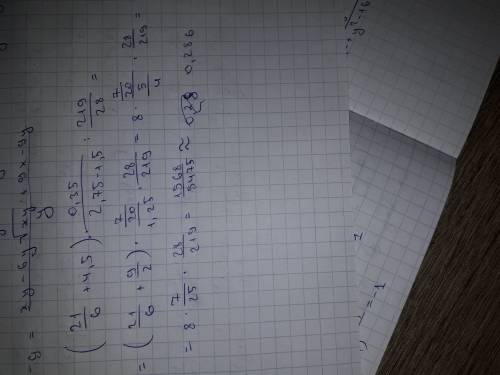 -y = xy - 6y + xy + 9x - 9y / y
(21/6 + 4,5) · 0,35/(2,75-1,5) : 219/28 =
= (21/6 + 9/2) · (7/20)/1,25 · 28/219 = 8 · (7/20)/(5/4) · 28/219 =
= 8 · 7/25 · 28/219 = 1568/5475 ≈ 0,286
y²-16
= -1